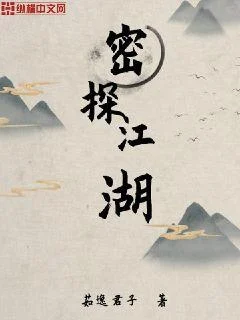 纵横中文网
密探江湖
茹逸君子 著